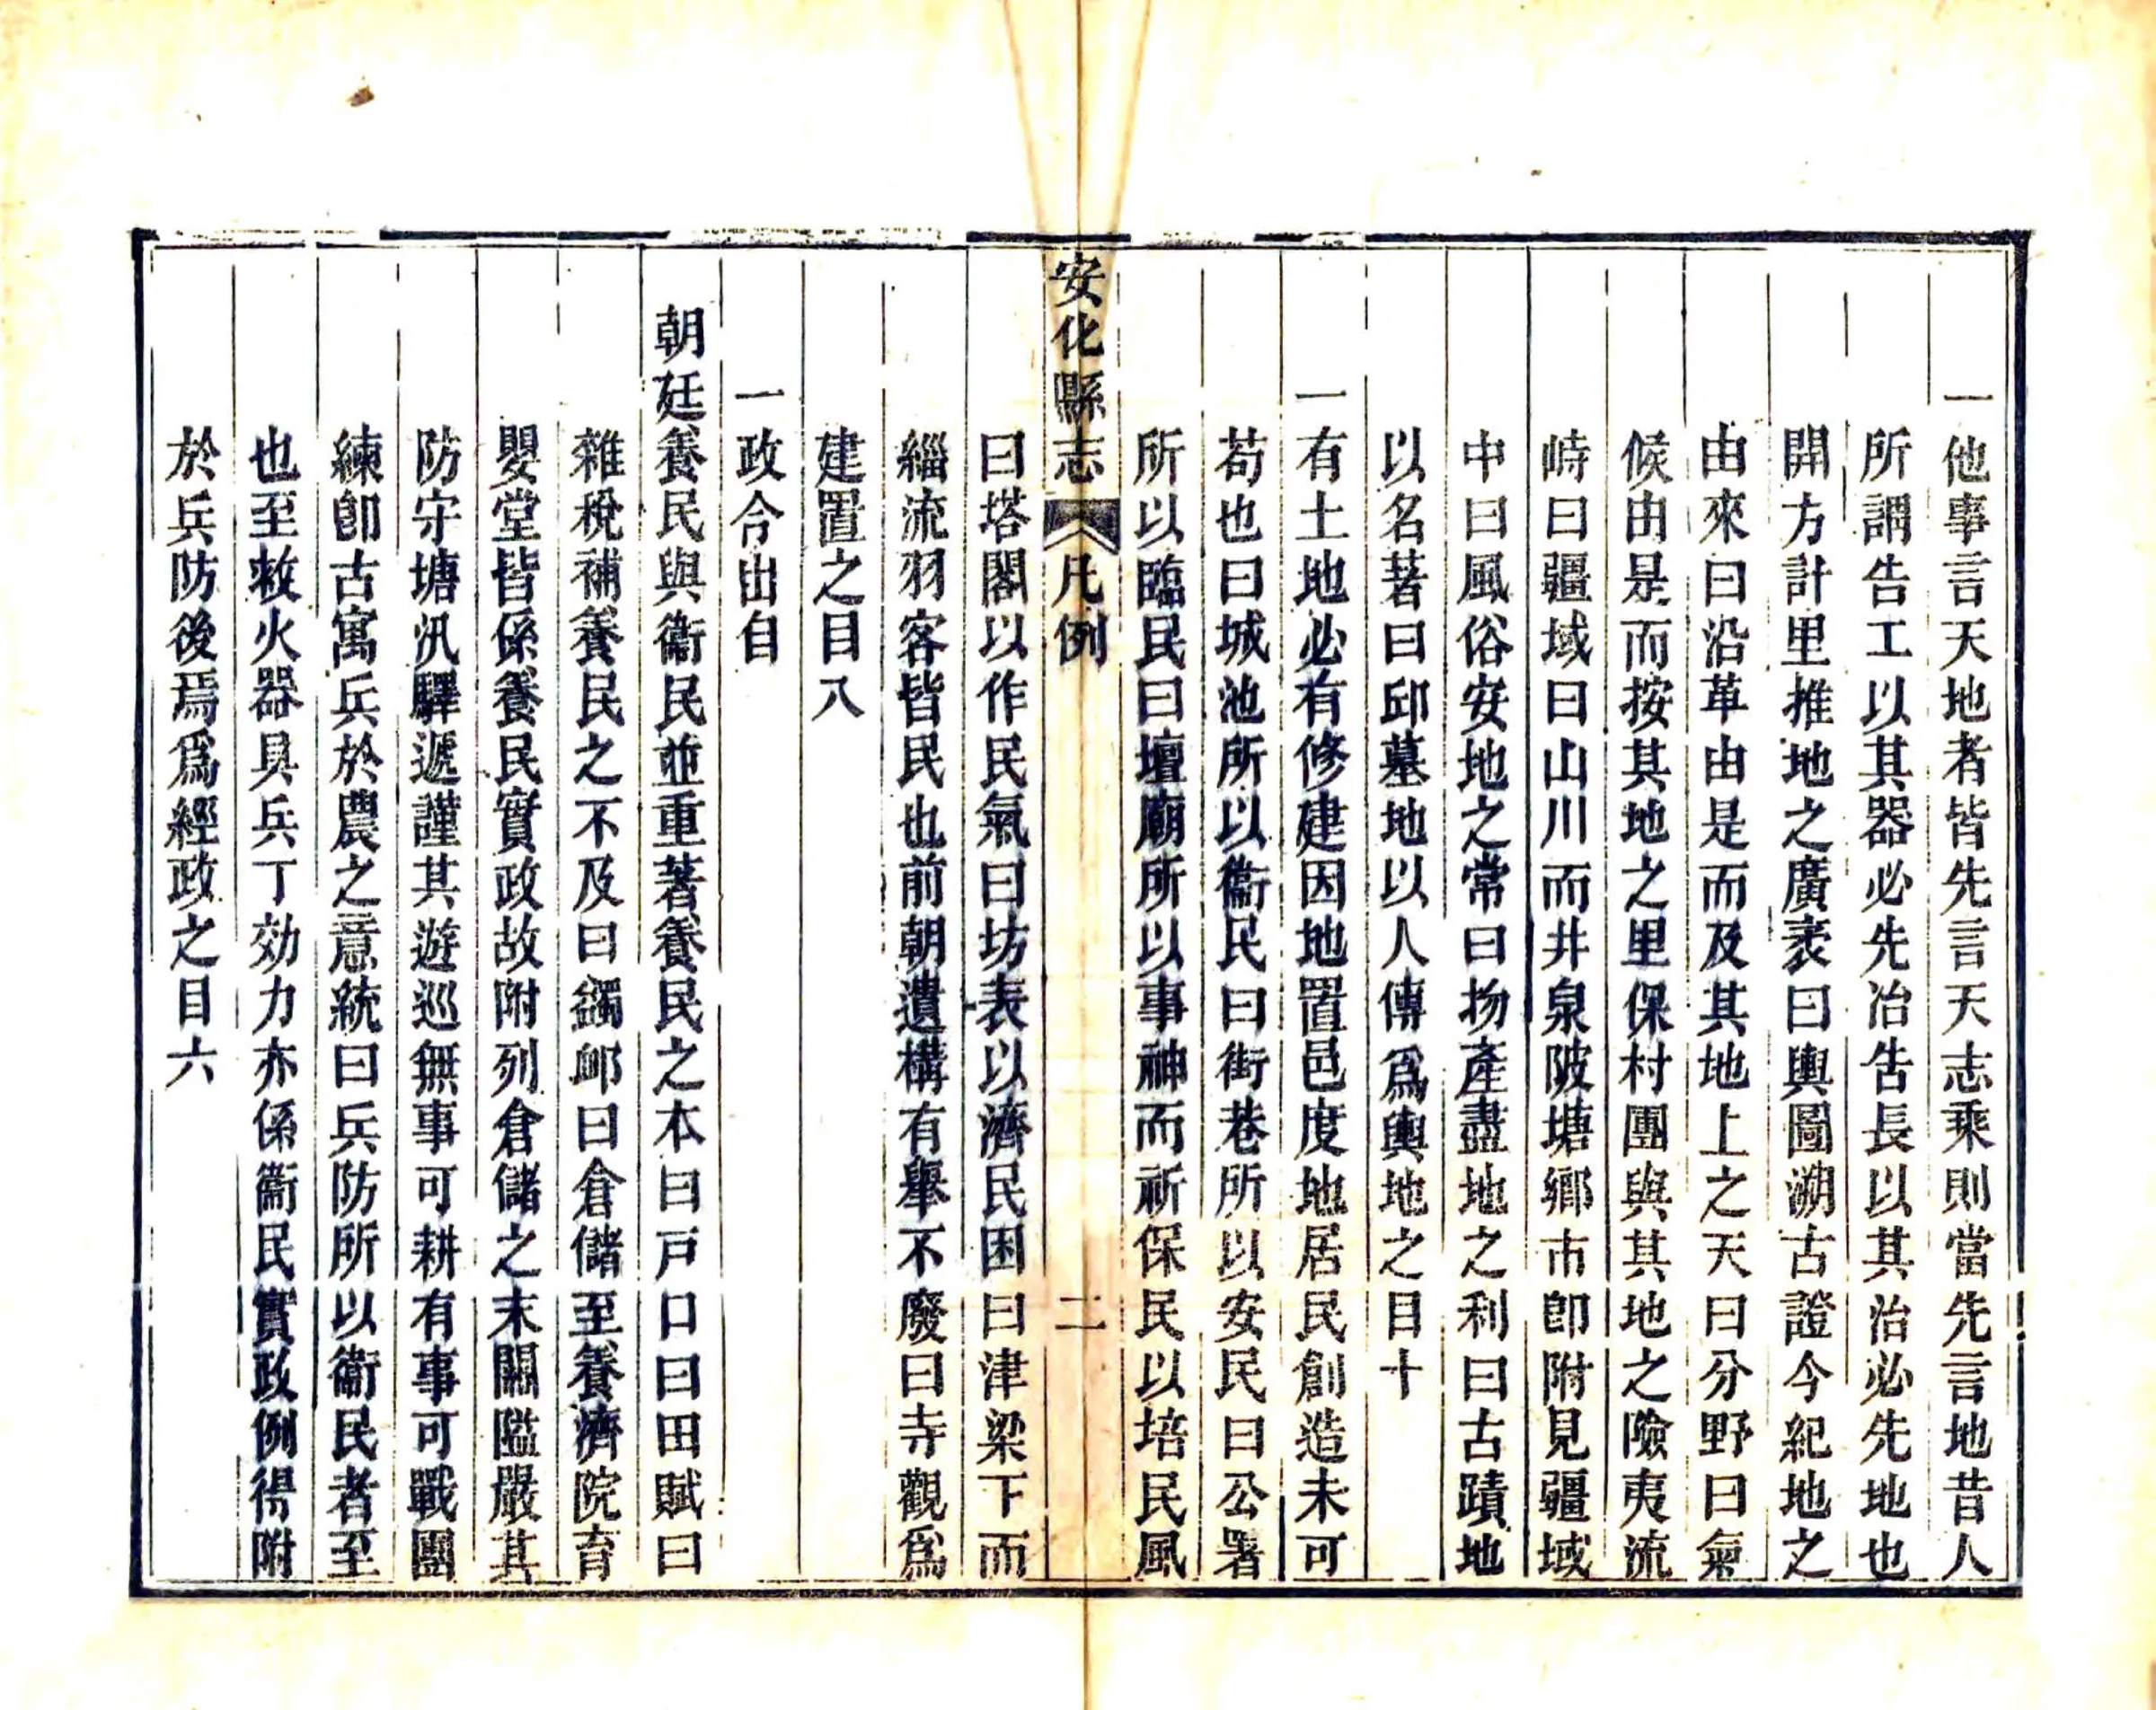 一他事言天地者皆先言天志乘則當先言地昔人
所謂告工以其器必先冶告長以其治必先地也
開方計里推地之廣袤曰輿圖溯古證今紀地之
由來曰沿革由是而及其地上之天曰分野曰氣
候由是而按其地之里保村團與其地之險夷流
峙曰疆域曰山川而井泉陂塘鄉市卽附見疆域
中曰風俗安地之常曰物產盡地之利曰古蹟地
以名著曰邱墓地以人傳爲輿地之目十
一有土地必有修建因地置邑度地居民創造未可
苟也曰城池所以衞民曰街巷所以安民曰公署
所以臨民曰壇廟所以事神而祈保民以培民風
安化縣志 凡例 二
曰塔閣以作民氣曰坊表以濟民困曰津梁下而
緇流羽客皆民也前朝遺構有舉不廢曰寺觀爲
建置之目八
一政令出自
朝廷養民與衞民並重著養民之本曰戸口曰田賦曰
雜稅補養民之不及曰蠲卹曰倉儲至養濟院育
嬰堂皆係養民實政故附列倉儲之末關隘嚴其
防守塘汛驛遞謹其遊巡無事可耕有事可戰團
練卽古寓兵於農之意統曰兵防所以衞民者至
也至救火器具兵丁効力亦係衞民實政例得附
於兵防後焉爲經政之目六